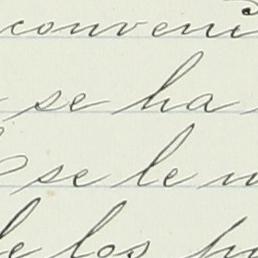 conveni
se ha
se le
los